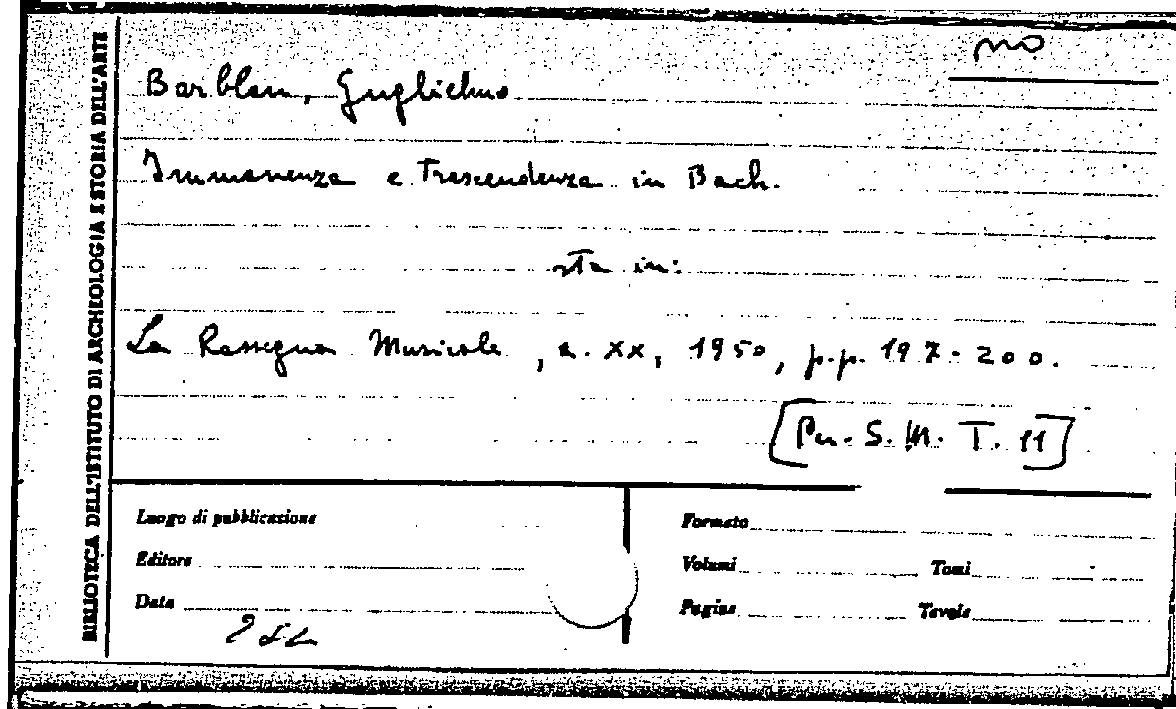 no
Barblan, Guglielmo
Immanenza e Trascendenza in Bach.
sta in:
La Rassegna Musicale, a. XX, 1950, p.p. 197-200.
[Per. S. M. T. 11]
BIBLIOTECA DELL'ISTITUTO DI ARCHEOLOGIA E STORIA DELL'ARTE
Luogo di pubblicazione
Formato
Editore
Volumi Tomi
Data
Pagine Tavole